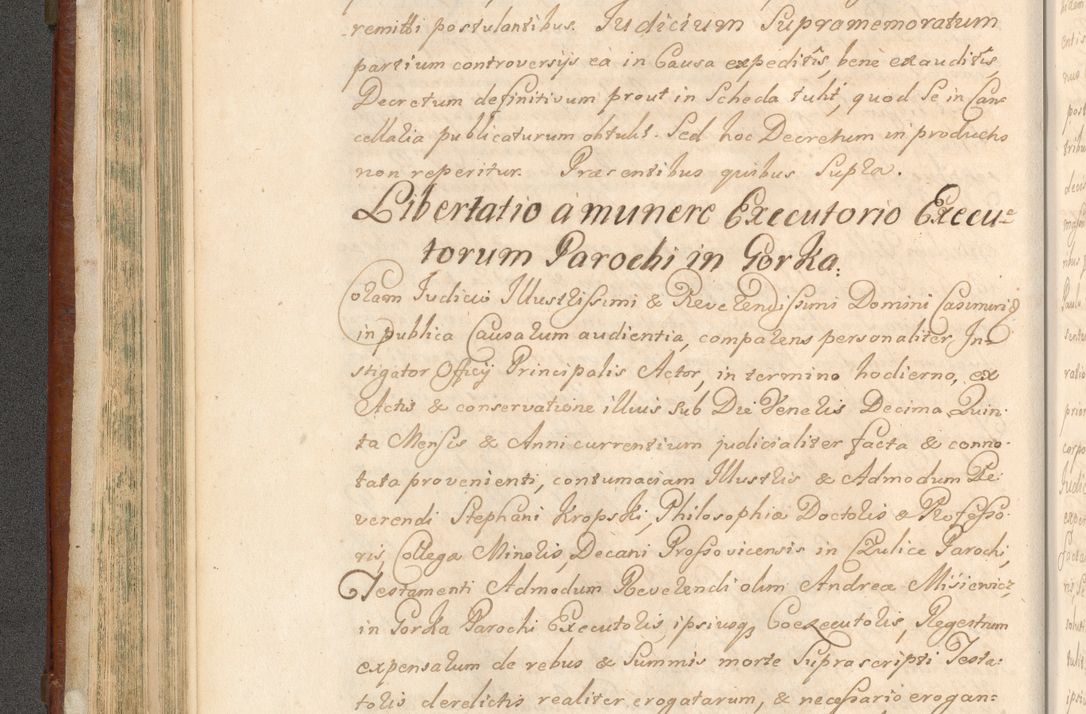 remitti postulantibus. Judicium Supramemoratum
partium controversijs eà in Causa expeditis, bene exauditis,
Decretum definitivum prout in Scheda tulit, quod se in Can=
cellaria publicaturum obtulit. Sed hoc Decretum in producto
non reperitur. Præsentibus quibus Supra.
Libertatio à munere Executorio Execu=
torum Parochi in Gorka.
Coram Judicio Illustrissimi & Reverendissimi Domini Casimiri &
in publica Causarum audientia, comparens personaliter In=
stigator Officij Principalis Actor, in termino hodierno, ex
Actis & conservatione illius sub Die Veneris Decima Quin=
ta Mensis & Anni currentium judicialiter facta & conno=
tata provenienti, contumaciam Illustris & Admodum Re=
verendi Stephani Kropski, Philosophiæ Doctoris & Professo=
ris, Collegæ Minoris, Decani Proszovicensis in Parochi,
Testamenti Admodum Reverendi olim Andreæ Misiewicz
in Gorka Parochi Executoris, ipsiusq Coexecutoris, Regestrum
expensarum de rebus & Summis morte Suprascripti Testa=
toris derelictis realiter erogatarum, & necessario erogan=